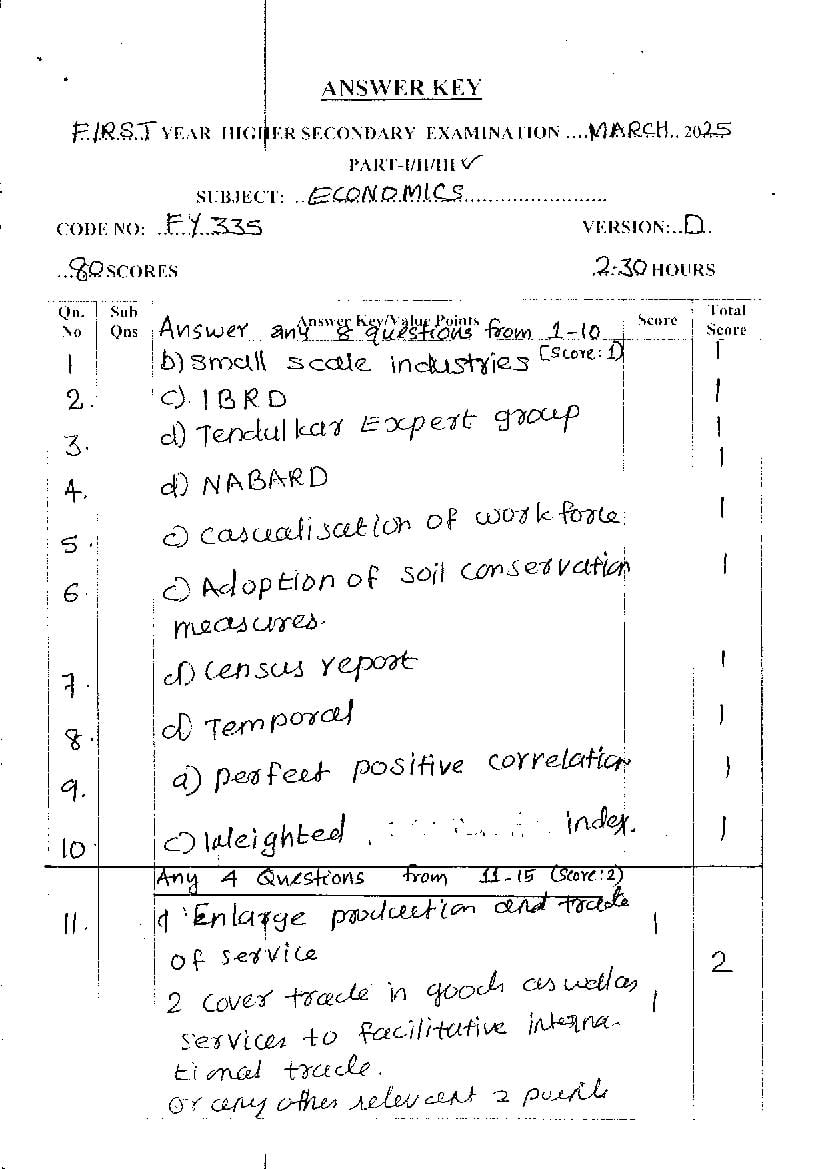 ANSWER KEY
F.I.R.S.T YEAR HIGHER SECONDARY EXAMINATION ....MARCH.. 2025
PART-I/II/III ✓
SUBJECT: ..ECONOMICS.......................
CODE NO: ..F.Y..335
VERSION:..D..
..80 SCORES
2:30 HOURS
Qn. No
Sub Qns
Answer Key/Value Points
Score
Total Score
Answer any 8 questions from 1-10
(Score: 1)
1 b) Small scale industries 1
2. c). IBRD 1
3. d) Tendulkar Expert group 1
4. d) NABARD 1
5. c) Casualisation of workforce. 1
6. c) Adoption of soil conservation 1
measures.
7. d) Census report 1
8. d) Temporal 1
9. a) perfect positive correlation 1
10 c) Weighted index. 1
Any 4 Questions from 11-15 (Score: 2)
11. 1 Enlarge production and trade 1
of service 2
2 cover trade in goods as well as 1
services to facilitative interna-
tional trade.
Or any other relevent 2 points